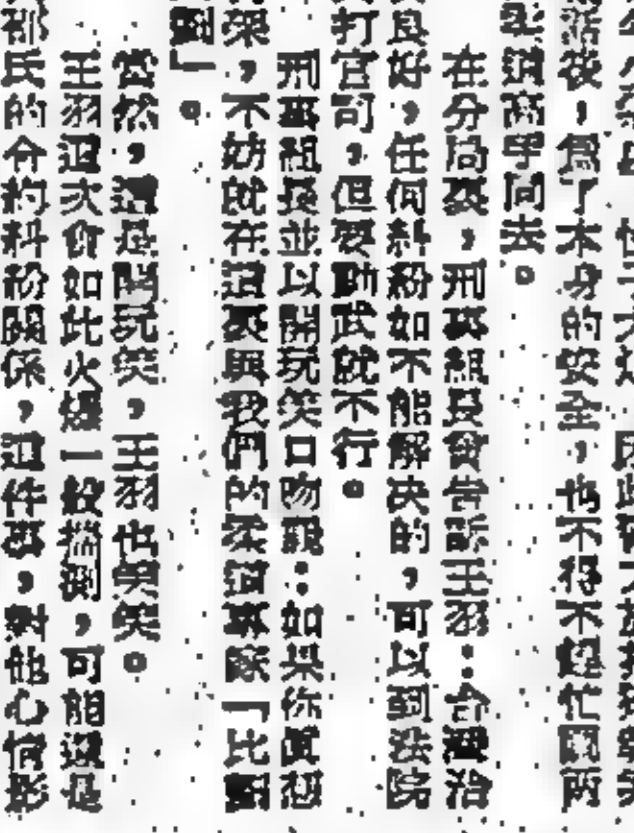 話後，為了本身的安全，也不得不趕忙閃兩
道高手同去。
在分局裏，刑事組長曾告訴王羽：台灣治
良好，任何糾紛如不能解決的，可以到法院
打官司，但要動武就不行。
刑事組長並以開玩笑口吻說：如果你真想
打架，不妨就在這裏與我們的柔道專家「比劃
劃」。
當然，這是開玩笑，王羽也笑笑。
王羽這次會如此火爆一般揣測，可能還是
鄧氏的合約糾紛關係，這件事，對他心情影